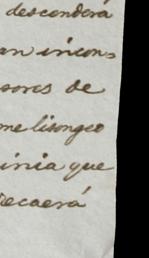 descenderá
an incon=
sores de
me lisongeo
inia que
recaerá